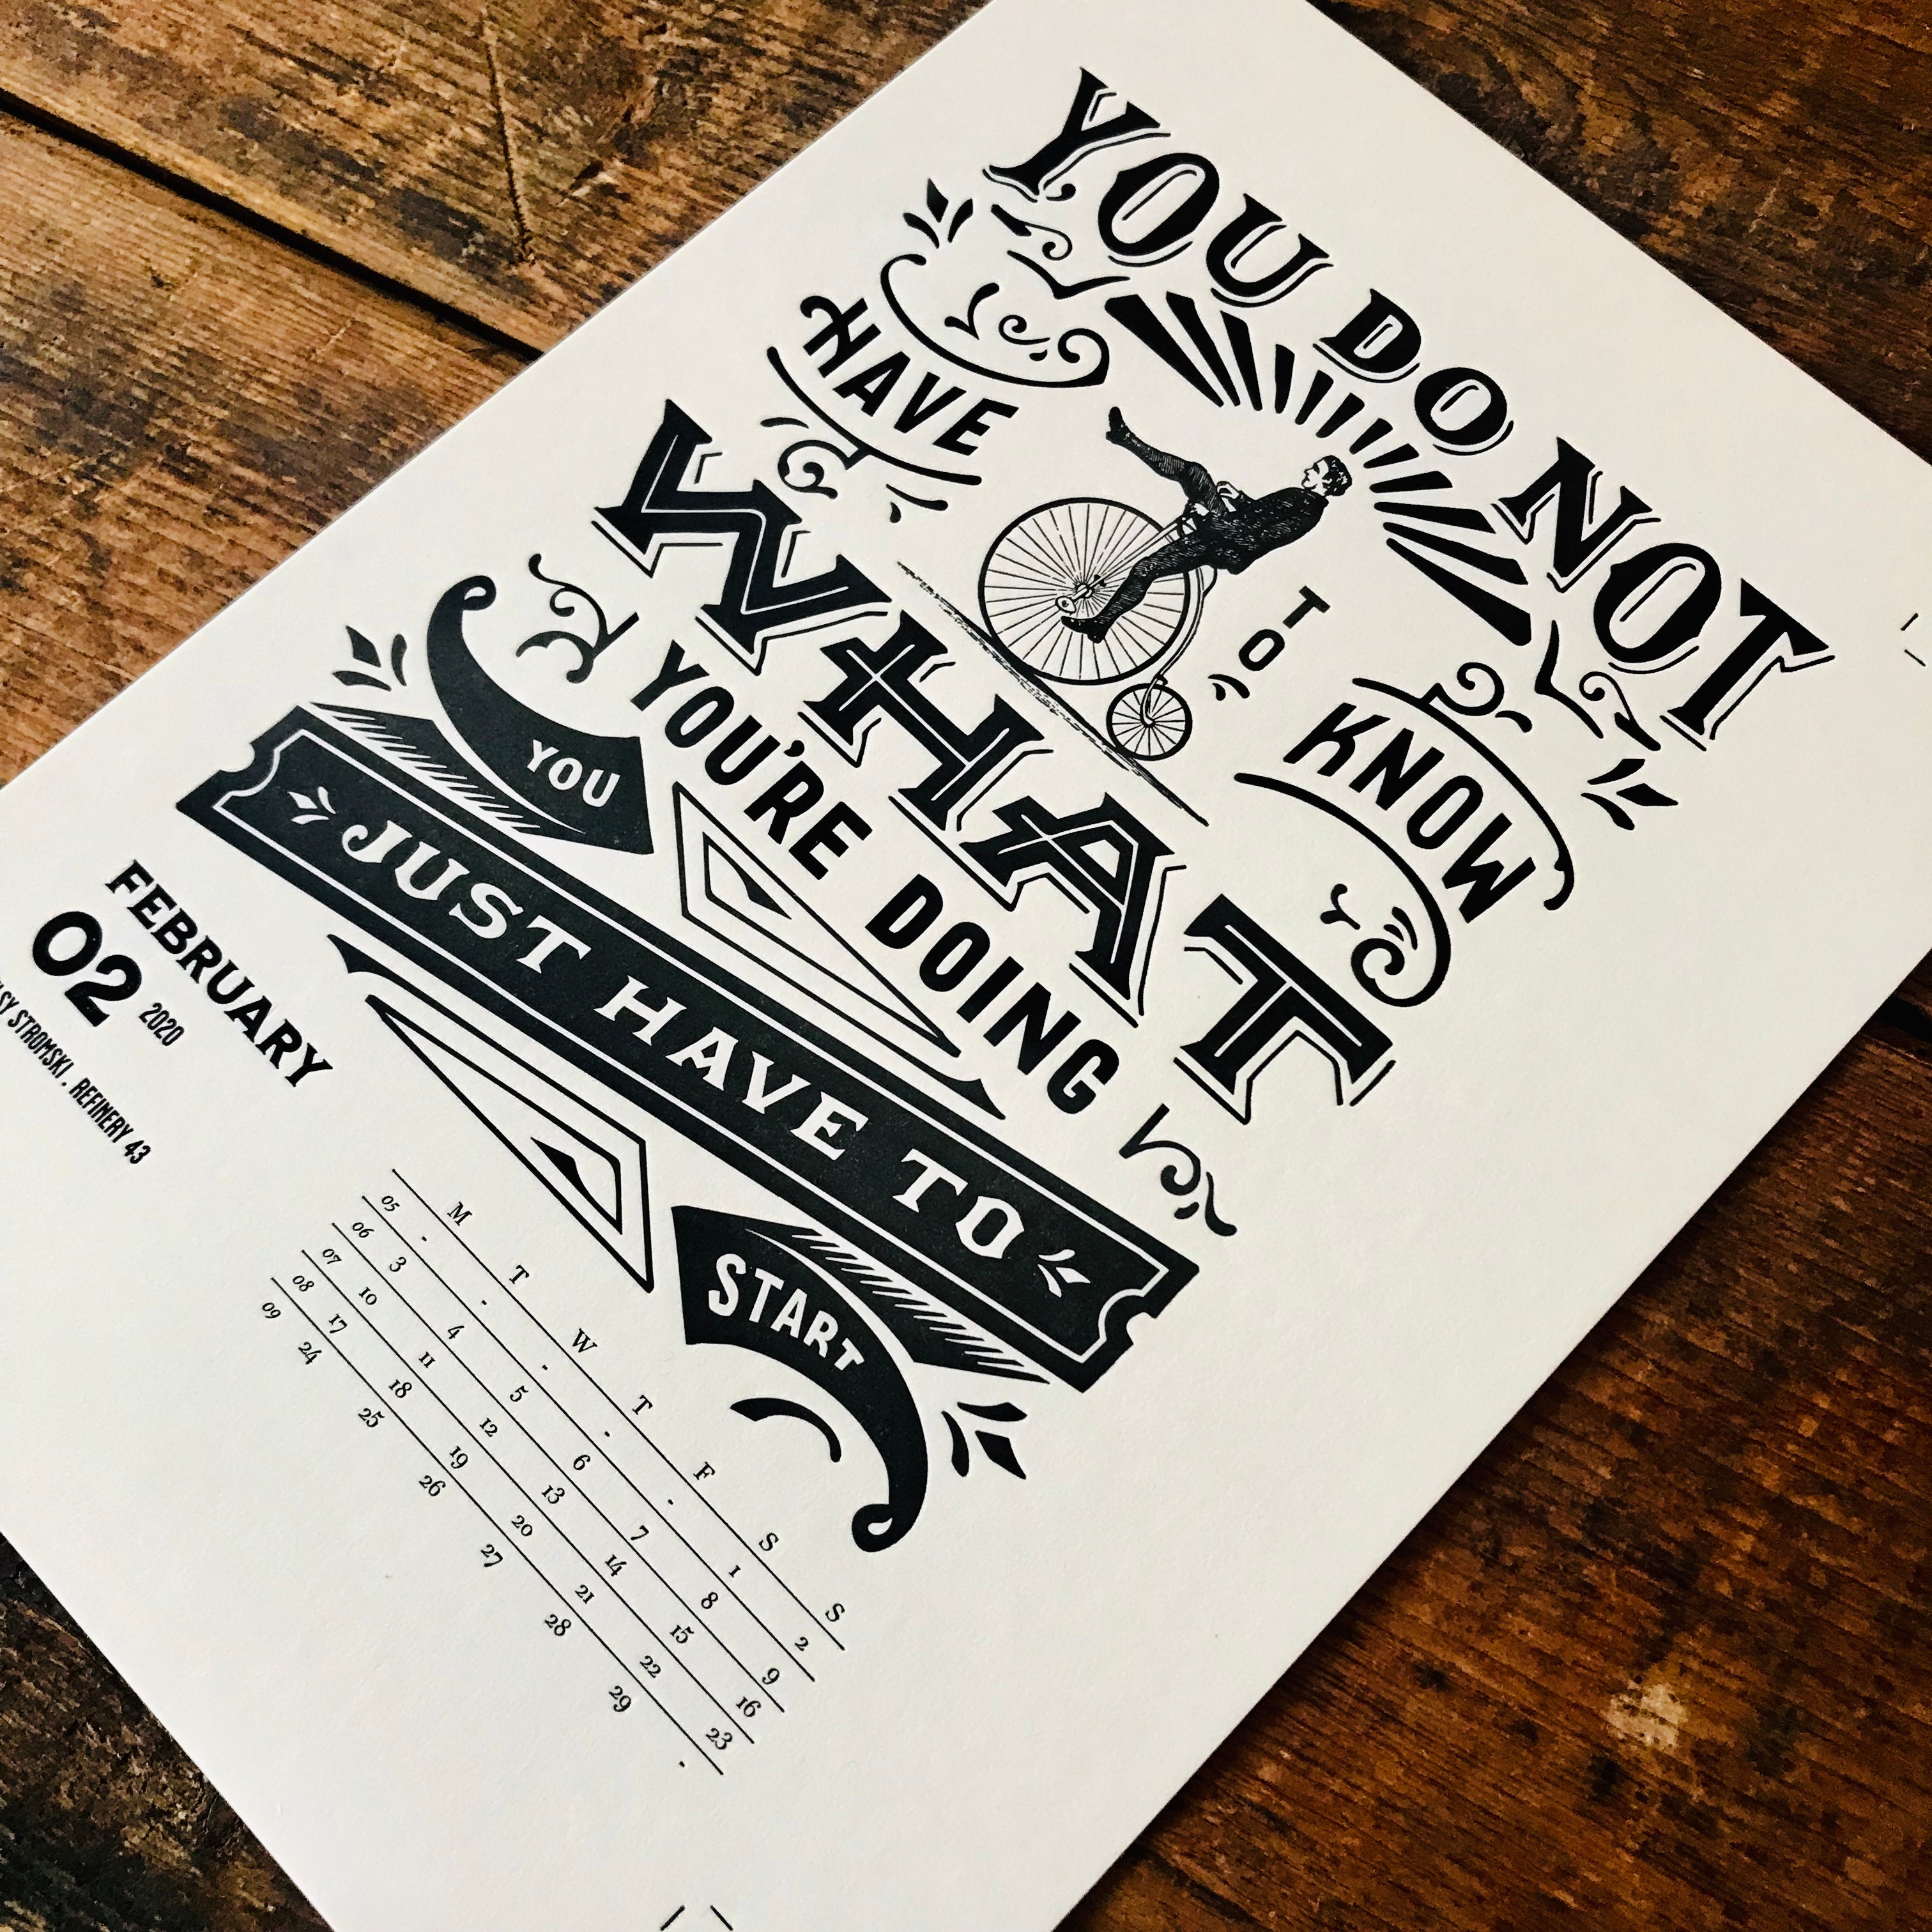 YOU DO NOT
HAVE
TO
KNOW
WHAT
YOU'RE DOING
YOU
JUST HAVE TO
START
FEBRUARY
02 2020
STROMSKI . REFINERY 43
M T W T F S S
05 - - - - - 1 2
06 3 4 5 6 7 8 9
07 10 11 12 13 14 15 16
08 17 18 19 20 21 22 23
09 24 25 26 27 28 29 -